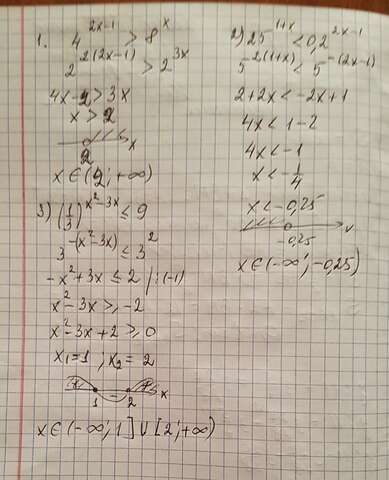 1. 4^{2x-1} > 8^x
2^{2(2x-1)} > 2^{3x}
4x-2 > 3x
x > 2
2 x
x ∈ (2; +∞)
2) 25^{1+x} < 0,2^{2x-1}
5^{2(1+x)} < 5^{-(2x-1)}
2+2x < -2x+1
4x < 1-2
4x < -1
x < -1/4
x < -0,25
-0,25 x
x ∈ (-∞; -0,25)
3) (1/3)^{x²-3x} ≤ 9
3^{-(x²-3x)} ≤ 3²
-x²+3x ≤ 2 /:(-1)
x²-3x ≥ -2
x²-3x+2 ≥ 0
x₁=1 ; x₂=2
+ - + x
1 2
x ∈ (-∞; 1] ∪ [2; +∞)